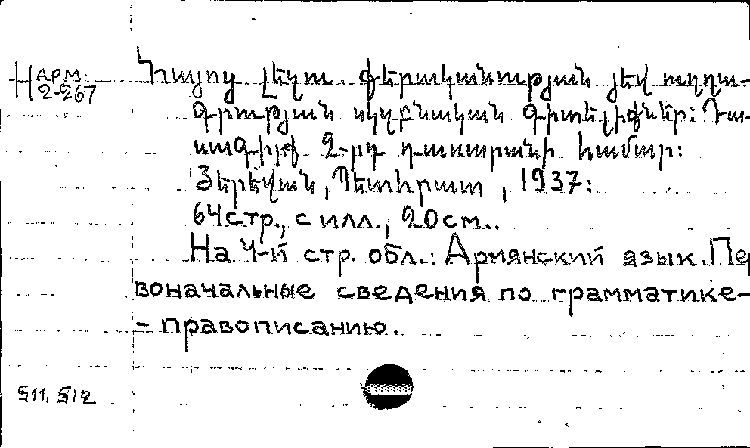 Н АРМ.
2-267
Հայոց լեզու. քերականության յեվ ուղղա-
գրության սկզբնական գիտելիքներ: Դա-
սագիրք 2-րդ դասարանի համար:
Յերեվան, Պետհրատ, 1937:
64 стр., с илл., 20 см..
На 4-й стр. обл.: Армянский язык. Пе
воначальные сведения по грамматике-
- правописанию.
511, 512